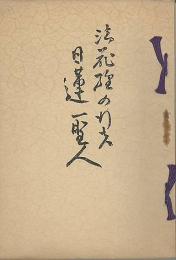 法華経の行者
日蓮聖人